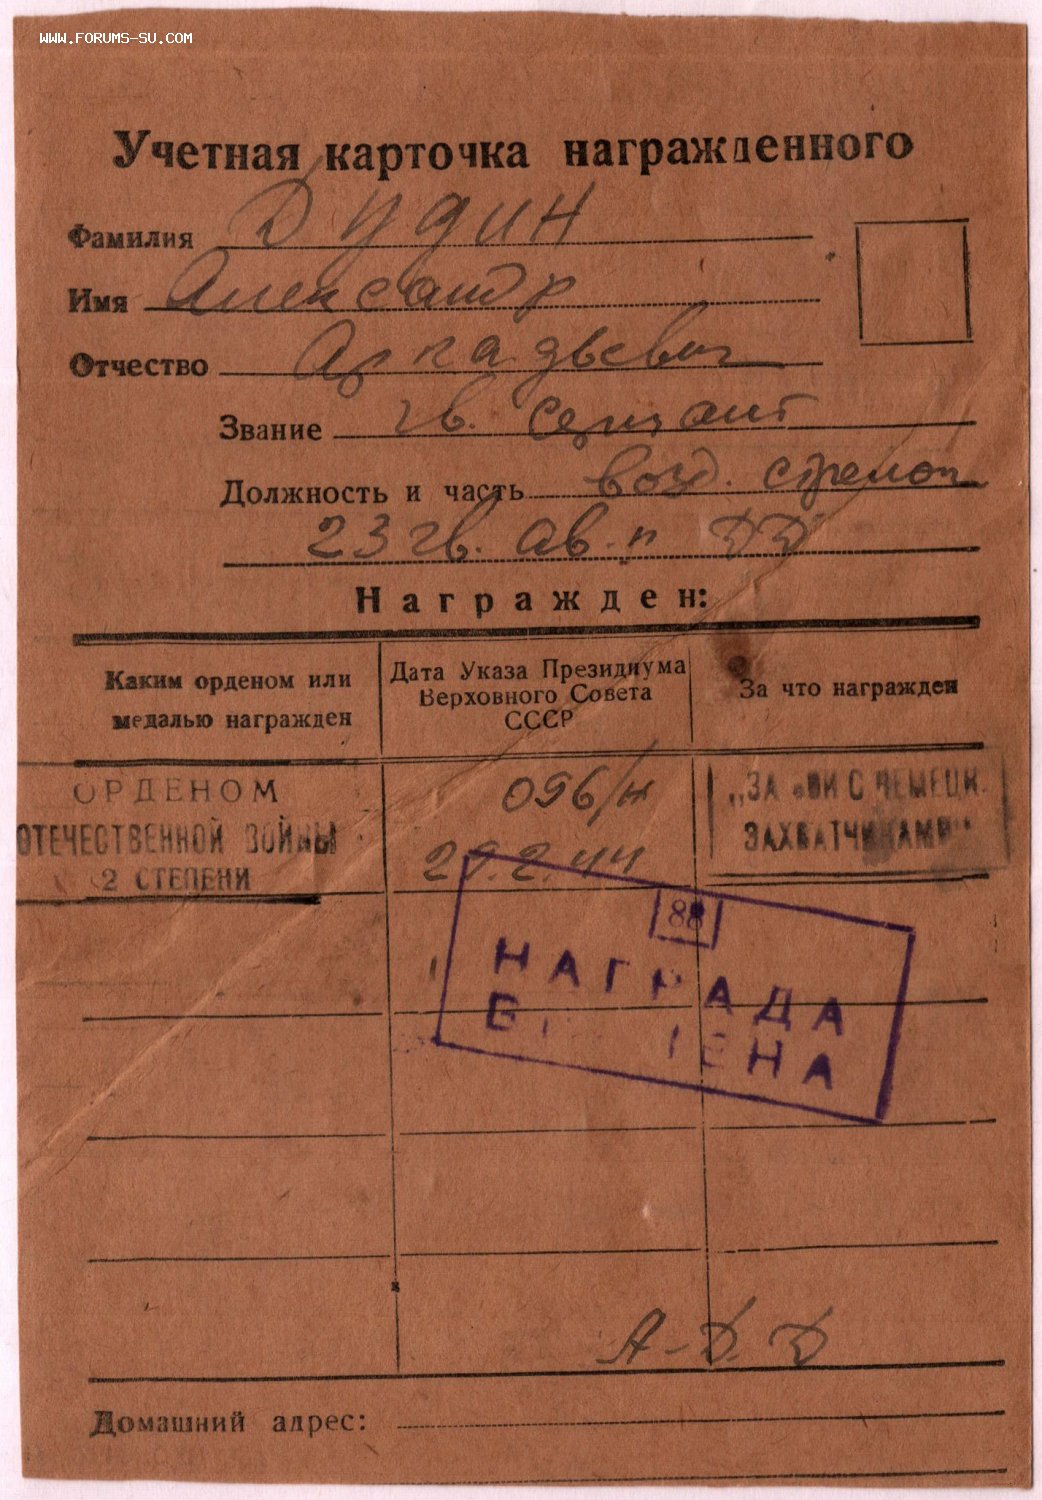 WWW.FORUMS-SU.COM
Учетная карточка награжденного
Фамилия Дудин
Имя Александр
Отчество Аркадьевич
Звание гв. сержант
Должность и часть возд. стрелок
23 гв. ав. п ДД
Награжден:
Каким орденом или
медалью награжден
Дата Указа Президиума
Верховного Совета
СССР
За что награжден
ОРДЕНОМ
ОТЕЧЕСТВЕННОЙ ВОЙНЫ
2 СТЕПЕНИ
096/н
29.2.44
„ЗА БОИ С НЕМЕЦК.
ЗАХВАТЧИКАМИ"
88
НАГРАДА
ВРУЧЕНА
А-Д.Д
Домашний адрес: